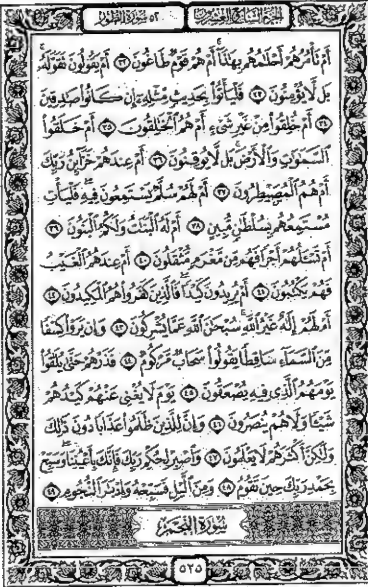 الجزء السابع والعشرون ٥٢ سورة الطور
أَمْ تَأْمُرُهُمْ أَحْلَٰمُهُم بِهَٰذَآ أَمْ هُمْ قَوْمٌ طَاغُونَ ٣٢ أَمْ يَقُولُونَ تَقَوَّلَهُۥ
بَل لَّا يُؤْمِنُونَ ٣٣ فَلْيَأْتُوا۟ بِحَدِيثٍ مِّثْلِهِۦٓ إِن كَانُوا۟ صَٰدِقِينَ
٣٤ أَمْ خُلِقُوا۟ مِنْ غَيْرِ شَىْءٍ أَمْ هُمُ ٱلْخَٰلِقُونَ ٣٥ أَمْ خَلَقُوا۟
ٱلسَّمَٰوَٰتِ وَٱلْأَرْضَ بَل لَّا يُوقِنُونَ ٣٦ أَمْ عِندَهُمْ خَزَآئِنُ رَبِّكَ
أَمْ هُمُ ٱلْمُصَۣيْطِرُونَ ٣٧ أَمْ لَهُمْ سُلَّمٌ يَسْتَمِعُونَ فِيهِ فَلْيَأْتِ
مُسْتَمِعُهُم بِسُلْطَٰنٍ مُّبِينٍ ٣٨ أَمْ لَهُ ٱلْبَنَٰتُ وَلَكُمُ ٱلْبَنُونَ ٣٩
أَمْ تَسْـَٔلُهُمْ أَجْرًا فَهُم مِّن مَّغْرَمٍ مُّثْقَلُونَ ٤٠ أَمْ عِندَهُمُ ٱلْغَيْبُ
فَهُمْ يَكْتُبُونَ ٤١ أَمْ يُرِيدُونَ كَيْدًا فَٱلَّذِينَ كَفَرُوا۟ هُمُ ٱلْمَكِيدُونَ ٤٢
أَمْ لَهُمْ إِلَٰهٌ غَيْرُ ٱللَّهِ سُبْحَٰنَ ٱللَّهِ عَمَّا يُشْرِكُونَ ٤٣ وَإِن يَرَوْا۟ كِسْفًا
مِّنَ ٱلسَّمَآءِ سَاقِطًا يَقُولُوا۟ سَحَابٌ مَّرْكُومٌ ٤٤ فَذَرْهُمْ حَتَّىٰ يُلَٰقُوا۟
يَوْمَهُمُ ٱلَّذِى فِيهِ يُصْعَقُونَ ٤٥ يَوْمَ لَا يُغْنِى عَنْهُمْ كَيْدُهُمْ
شَيْـًٔا وَلَا هُمْ يُنصَرُونَ ٤٦ وَإِنَّ لِلَّذِينَ ظَلَمُوا۟ عَذَابًا دُونَ ذَٰلِكَ
وَلَٰكِنَّ أَكْثَرَهُمْ لَا يَعْلَمُونَ ٤٧ وَٱصْبِرْ لِحُكْمِ رَبِّكَ فَإِنَّكَ بِأَعْيُنِنَا وَسَبِّحْ
بِحَمْدِ رَبِّكَ حِينَ تَقُومُ ٤٨ وَمِنَ ٱلَّيْلِ فَسَبِّحْهُ وَإِدْبَٰرَ ٱلنُّجُومِ ٤٩
سُورَةُ النَّجْمِ
٥٢٥